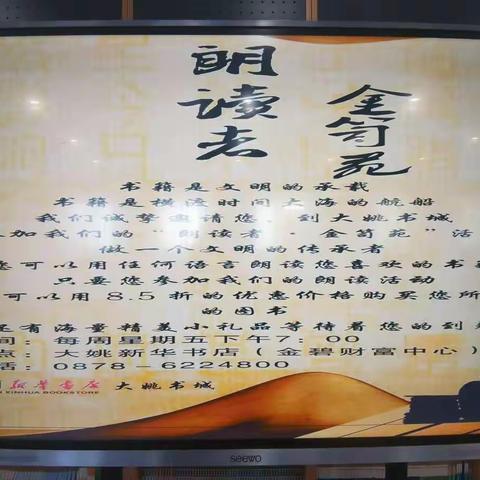 朗读者
金笥苑
书籍是文明的承载
书籍是横渡时间大海的航船
我们诚挚邀请您，到大姚书城
加我们的“朗读者·金笥苑”活
做一个文明的传承者
您可以用任何语言朗读您喜欢的书
只要您参加我们的朗读活动
可以用8.5折的优惠价格购买您所
的图书
还有海量精美小礼品等待着您的到
间：每周星期五下午7：00
点：大姚新华书店（金碧财富中心）
话：0878-6224800
新华书店 大姚书城
XINHUA BOOKSTORE
seewo